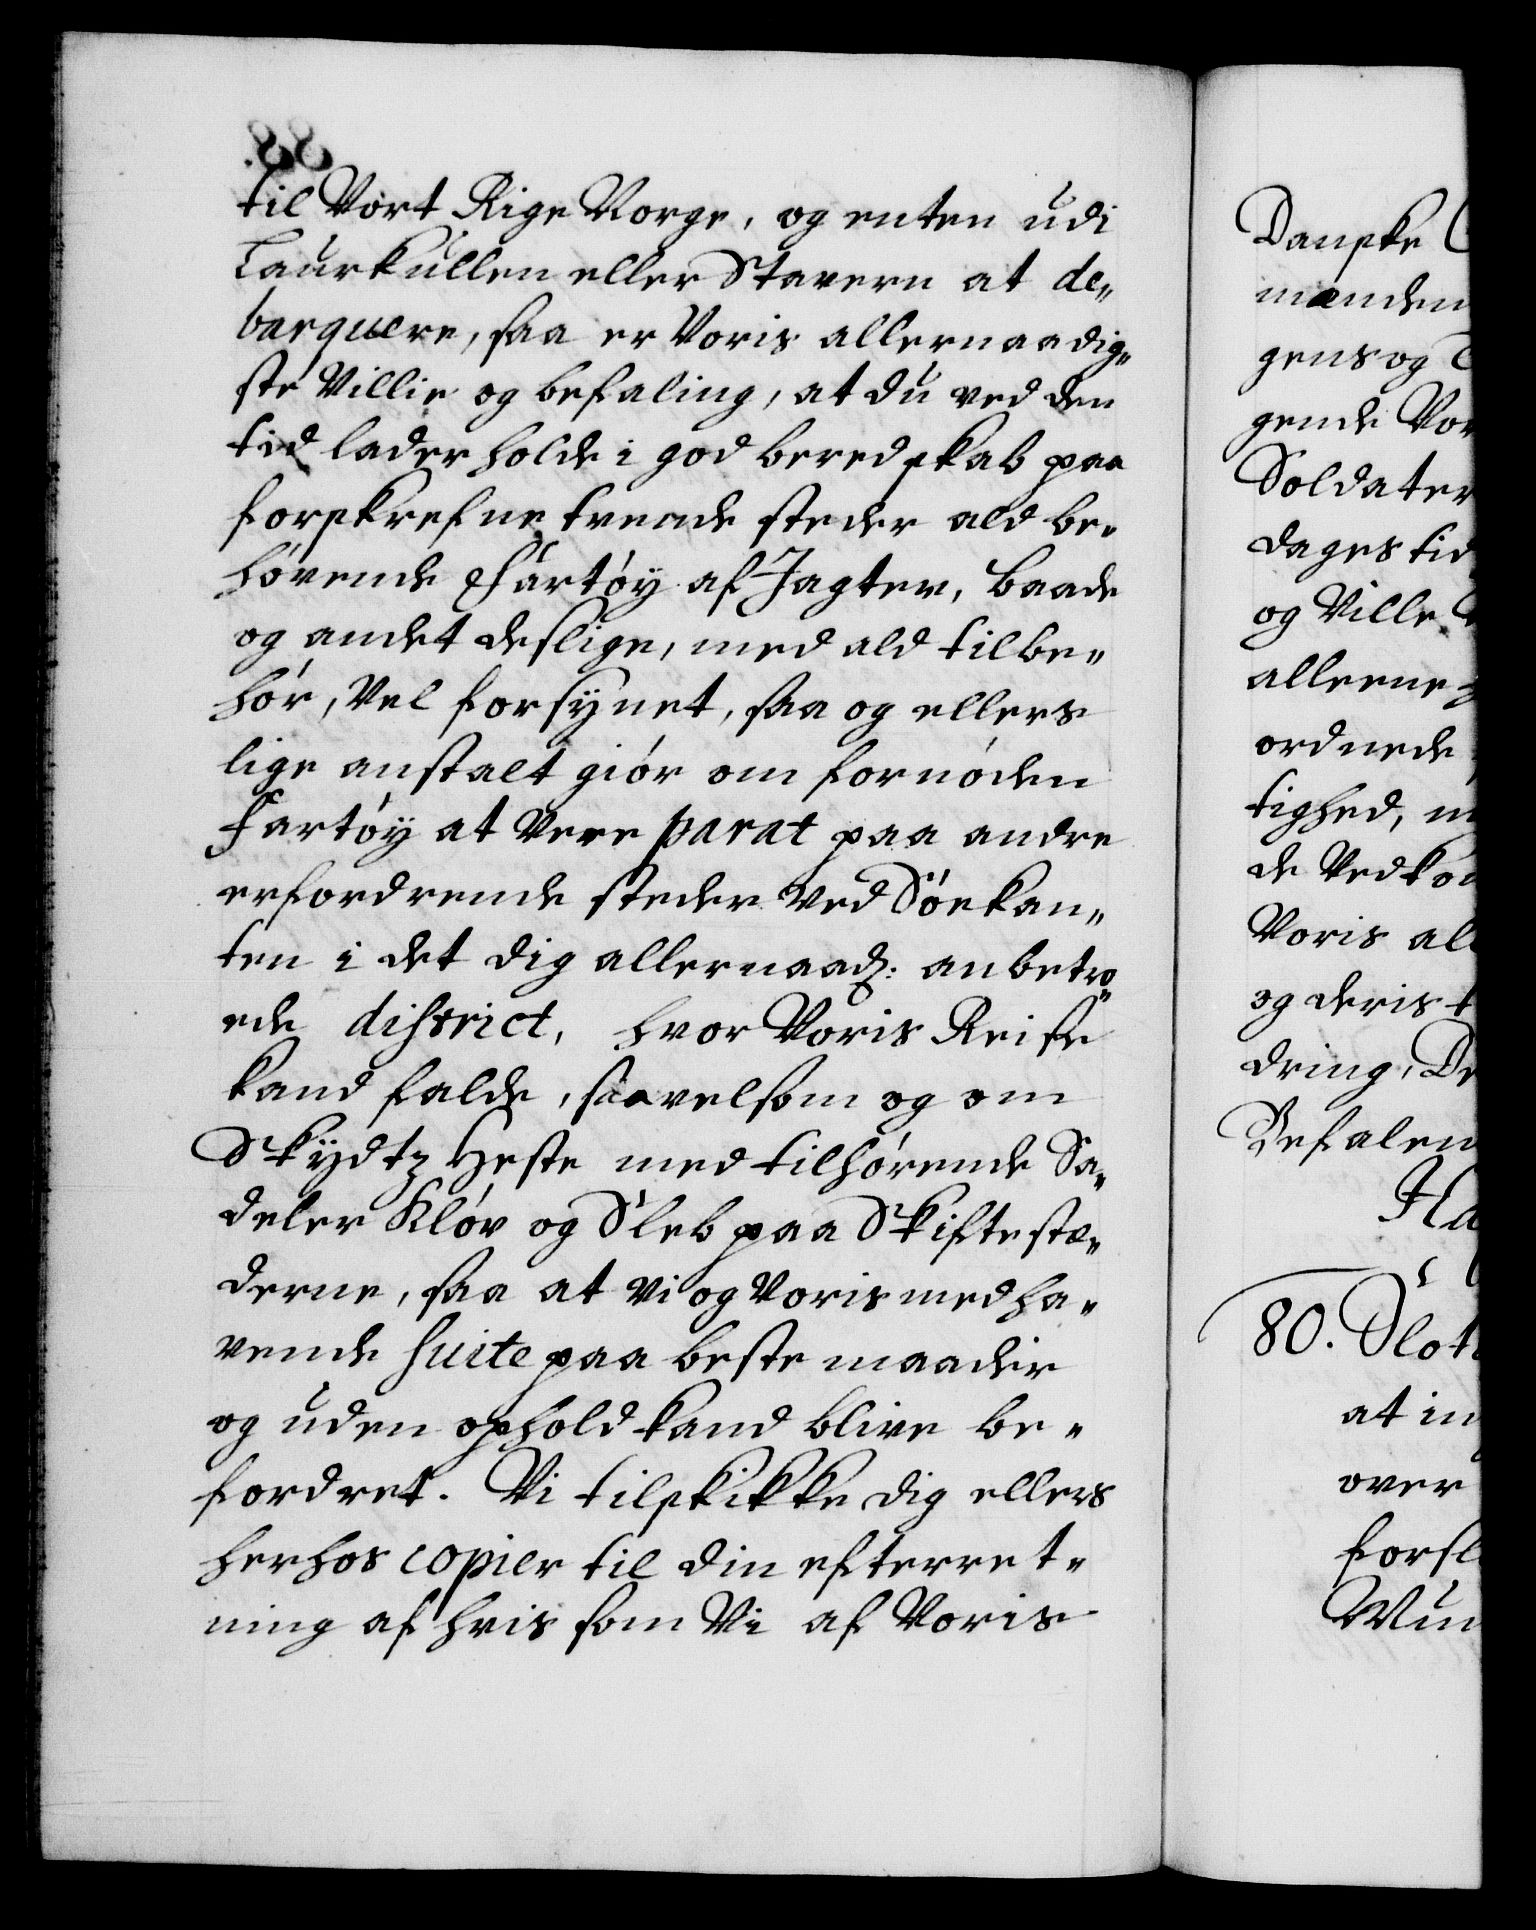 til Vort Rige Norge, og enten udi
Laurkullen eller Stavern at de„
barquere, saa er Voris allernaadig„
ste Villie og befaling, at du ved den
tid lader holde i god beredskab paa
forskrefne tvende steder ald be„
høvende Fartøy af Jagter, Baade
og andet deslige, med ald tilbe„
hør, Vel forsynet, saa og ellers
lige anstalt giør om fornøden
Fartøy at Vere parat paa andre
erfordrende steder ved Søekan„
ten i det dig allernaad: anbetro„
ede district, hvor Voris Reise
kand falde, saavelsom og om
Skydtz Heste med tilhørende Sa„
deler Kløv og Sleb paa Skifteste„
derne, saa at Vi og Voris medha„
vende suite paa beste maader
og uden ophold kand blive be„
fordret. Vi tilskikke dig ellers
herhos copier til din efterret„
ning af hvis som Vi af Voris
Danske
mænden
gens og
gende Vor
Soldater
dages tid
og Ville
alleene
ordnede
tighed,
de Vedko
Voris al
og deris
dring, De
Befalen
Ha
80. Slot
at in
over
forsl